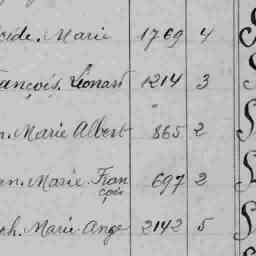 cide. Marie 1769 4
rançois. Léonard 1214 3
n. Marie Albert 865 2
an. Marie. Fran 697 2
çois
ph. Marie. Ange 2142 5